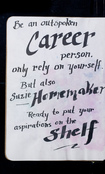 Be an outspoken
Career
person.
only rely on yourself.
But also
Suzie Homemaker
Ready to put your
aspirations on the
Shelf